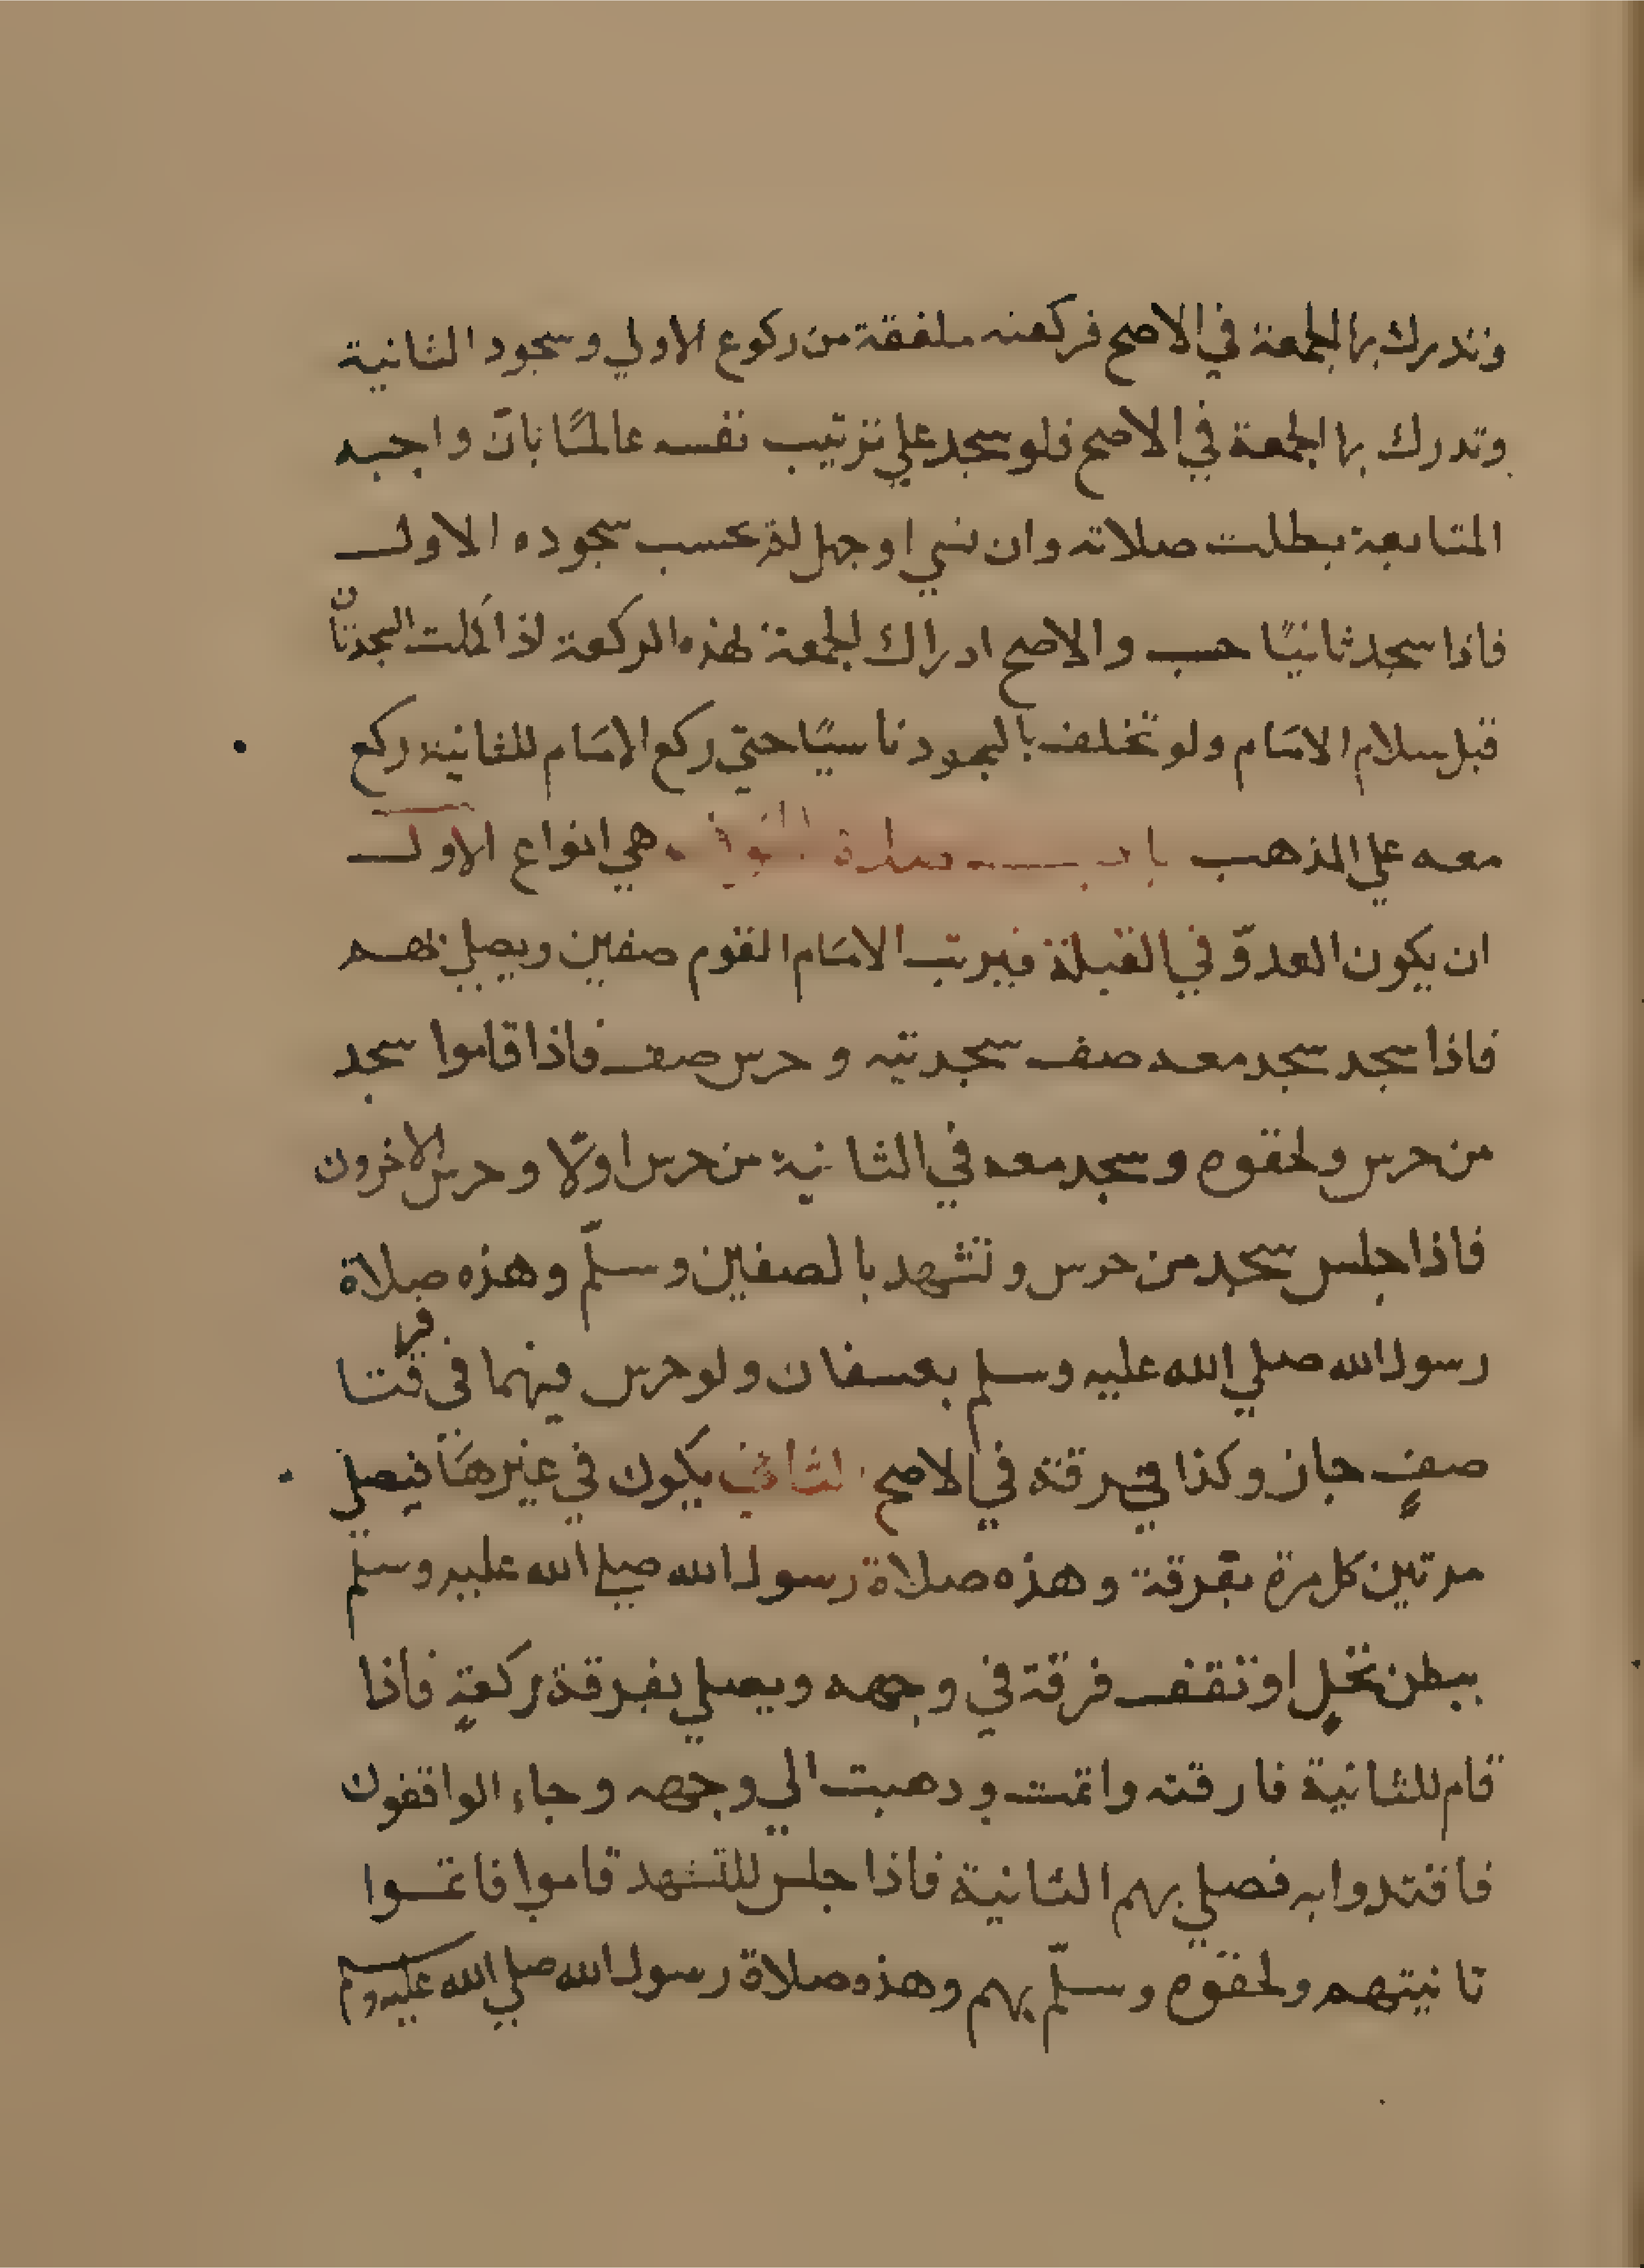 وتدرك بها الجمعة في الاصح فركعته ملفقة من ركوع الاولي وسجود الثانية
وتدرك بها الجمعة في الاصح فلو سجد علي ترتيب نفسه عالمًا بانّ واجبه
المتابعة بطلت صلاته وان نسي او جهل لم يحسب سجوده الاول
فاذا سجد ثانيًا حسب والاصح ادراك الجمعة بهذه الركعة اذا كملت السجدتان
قبل سلام الامام ولو تخلف بالسجود ناسيًا حتي ركع الامام للثانية ركع
معه علي المذهب باب صلاة الخوف هي انواع الاول
ان يكون العدوّ في القبلة فيرتب الامام القوم صفين ويصلي بهم
فاذا سجد سجد معه صف سجدتيه وحرس صف فاذا قاموا سجد
من حرس ولحقوه وسجد معه في الثانية من حرس اوّلا وحرس الاخرون
فاذا جلس سجد من حرس وتشهد بالصفين وسلّم وهذه صلاة
رسول الله صلي الله عليه وسلم بعسفان ولو حرس فيهما فرقتا
صفٍ جاز وكذا فرقة في الاصح الثاني يكون في غيرها فيصلي
مرتين كل مرة بفرقة وهذه صلاة رسول الله صلي الله عليه وسلم
ببطن نخلٍ او تقف فرقة في وجهه ويصلي بفرقة ركعةٍ فاذا
قام للثانية فارقته واتمت وذهبت الي وجهه وجاء الواقفون
فاقتدوا به فصلي بهم الثانية فاذا جلس للتشهد قاموا فاتموا
ثانيتهم ولحقوه وسلّم بهم وهذه صلاة رسول الله صلي الله عليه وسلم